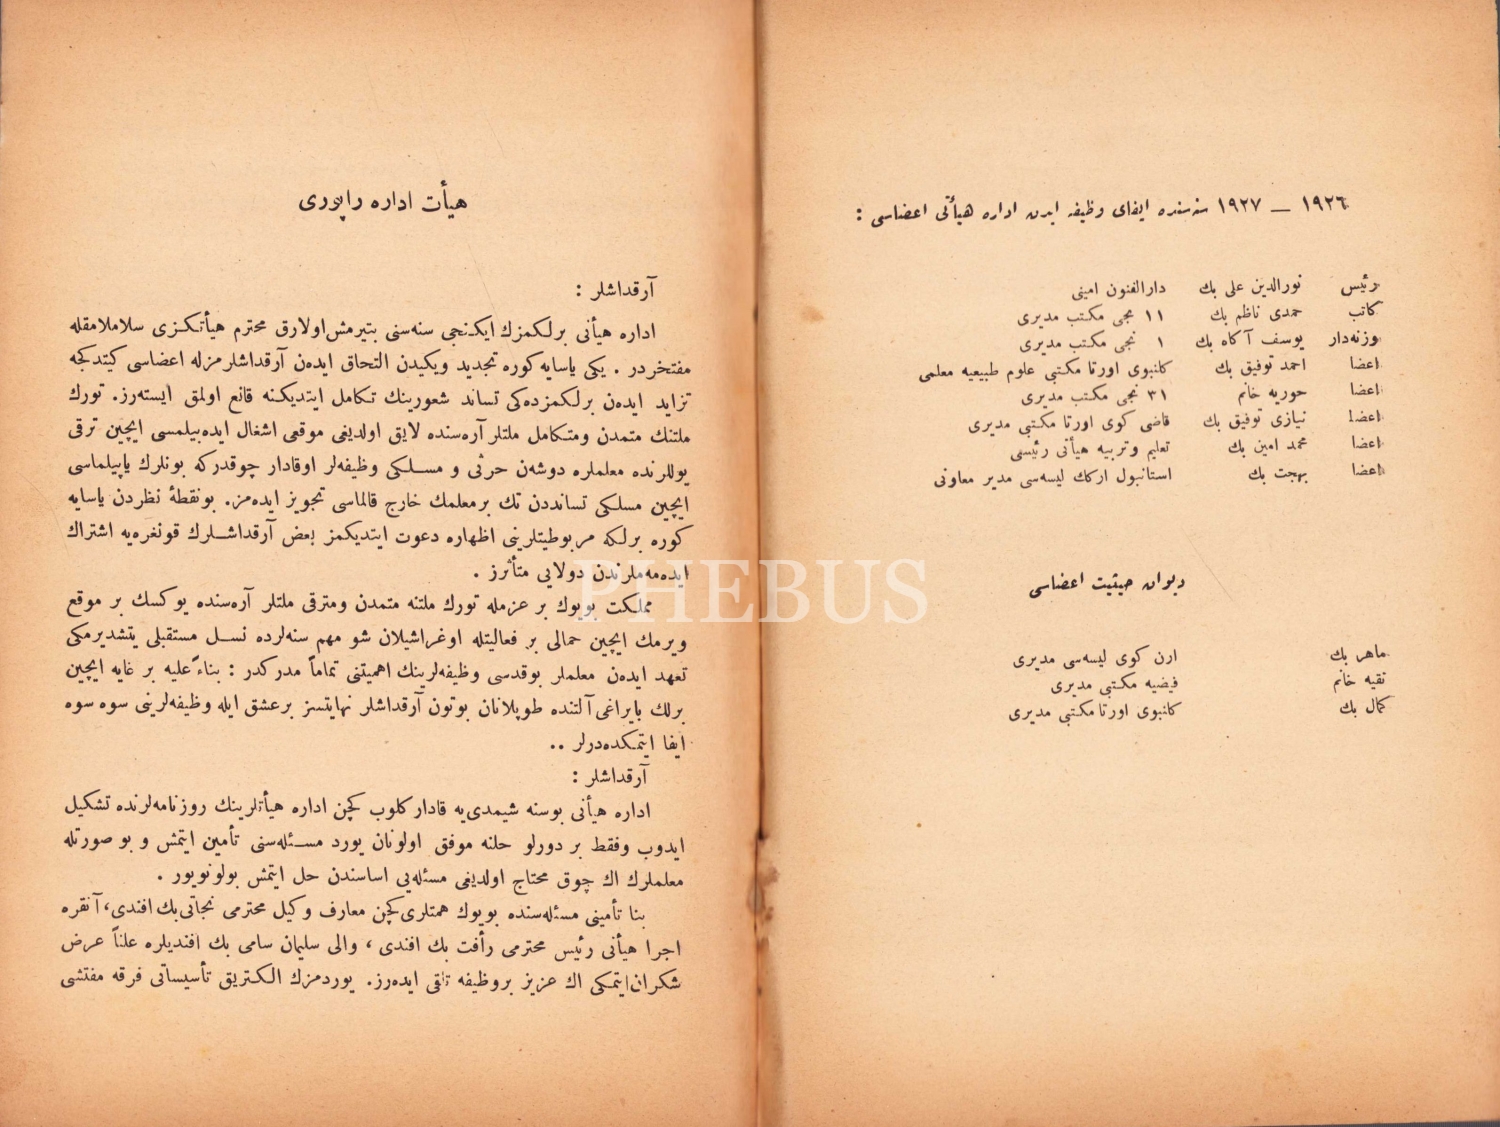 ١٩٢٦ — ١٩٢٧ سنه‌سنده ایفای وظیفه ایدن اداره هیأتی اعضاسی :
رئیس نورالدین علی بك دارالفنون امینی
كاتب حمدی ناظم بك ١١ نجی مكتب مدیری
وزنه‌دار یوسف آكاه بك ١ نجی مكتب مدیری
اعضا احمد توفیق بك كلنبوی اورتا مكتبی علوم طبیعیه معلمی
اعضا حوریه خانم ٣١ نجی مكتب مدیری
اعضا نیازی توفیق بك قاضی كوی اورتا مكتبی مدیری
اعضا محمد امین بك تعلیم وتربیه هیأتی رئیسی
اعضا بهجت بك استانبول اركك لیسه‌سی مدیر معاونی
دیوان حیثیت اعضاسی
ماهر بك ارن كوی لیسه‌سی مدیری
نقیه خانم فیضیه مكتبی مدیری
كمال بك كلنبوی اورتا مكتبی مدیری
هیأت اداره راپوری
آرقداشلر :
اداره هیأتی برلكمزك ایكنجی سنه‌سنی بتیرمش‌اولارق محترم هیأتكزی سلاملامقله
مفتخردر . یكی یاسایه كوره تجدید ویكیدن التحاق ایده‌ن آرقداشلرمزله اعضاسی كیتدكجه
تزاید ایده‌ن برلكمزده‌كی تساند شعورینك تكامل ایتدیكنه قانع اولمق ایسته‌رز. تورك
ملتنك متمدن ومتكامل ملتلر آره‌سنده لایق اولدیغی موقعی اشغال ایده‌بیلمسی ایچین ترقی
یوللرنده معلملره دوشه‌ن حرثی و مسلكی وظیفه‌لر اوقادار چوقدركه بونلرك یاپیلماسی
ایچین مسلكی تساندن تك برمعلمك خارج قالماسی تجویز ایده‌مز. بونقطهٔ نظردن یاسایه
كوره برلكه مربوطیتلرینی اظهاره دعوت ایتدیكمز بعض آرقداشلرك قونغره‌یه اشتراك
ایده‌مه‌ملرندن دولایی متأثرز .
مملكت بویوك بر عزمله تورك ملتنه متمدن ومترقی ملتلر آره‌سنده یوكسك بر موقع
ویرمك ایچین حمالی بر فعالیتله اوغراشیلان شو مهم سنه‌لرده نسل مستقبلی یتشدیرمكی
تعهد ایده‌ن معلملر بوقدسی وظیفه‌لرینك اهمیتنی تماماً مدركدر : بناءً علیه بر غایه ایچین
برلك بایراغی آلتنده طوپلانان بوتون آرقداشلر نهایتسز برعشق ایله وظیفه‌لرینی سوه سوه
ایفا ایتمكده‌درلر ..
آرقداشلر :
اداره هیأتی بوسنه شیمدی‌یه قادار كلوب كچن اداره هیأتلرینك روزنامه‌لرنده تشكیل
ایدوب وفقط بر دورلو حلنه موفق اولونان یورد مسئله‌سنی تأمین ایتمش و بو صورتله
معلملرك اك چوق محتاج اولدیغی مسئله‌یی اساسندن حل ایتمش بولونویور .
بنا تأمینی مسئله‌سنده بویوك همتلری‌كچن معارف وكیل محترمی نجاتی‌بك افندی، آنقره
اجرا هیأتی رئیس محترمی رأفت بك افندی ، والی سلیمان سامی بك افندیلره علناً عرض
شكران‌ایتمكی اك عزیز بروظیفه تلقی ایده‌رز. یوردمزك الكتریق تأسیساتی فرقه مفتشی
PHEBUS